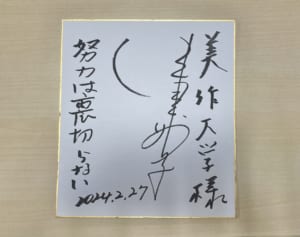 美作大学様
努力は裏切らない
2024.2.27